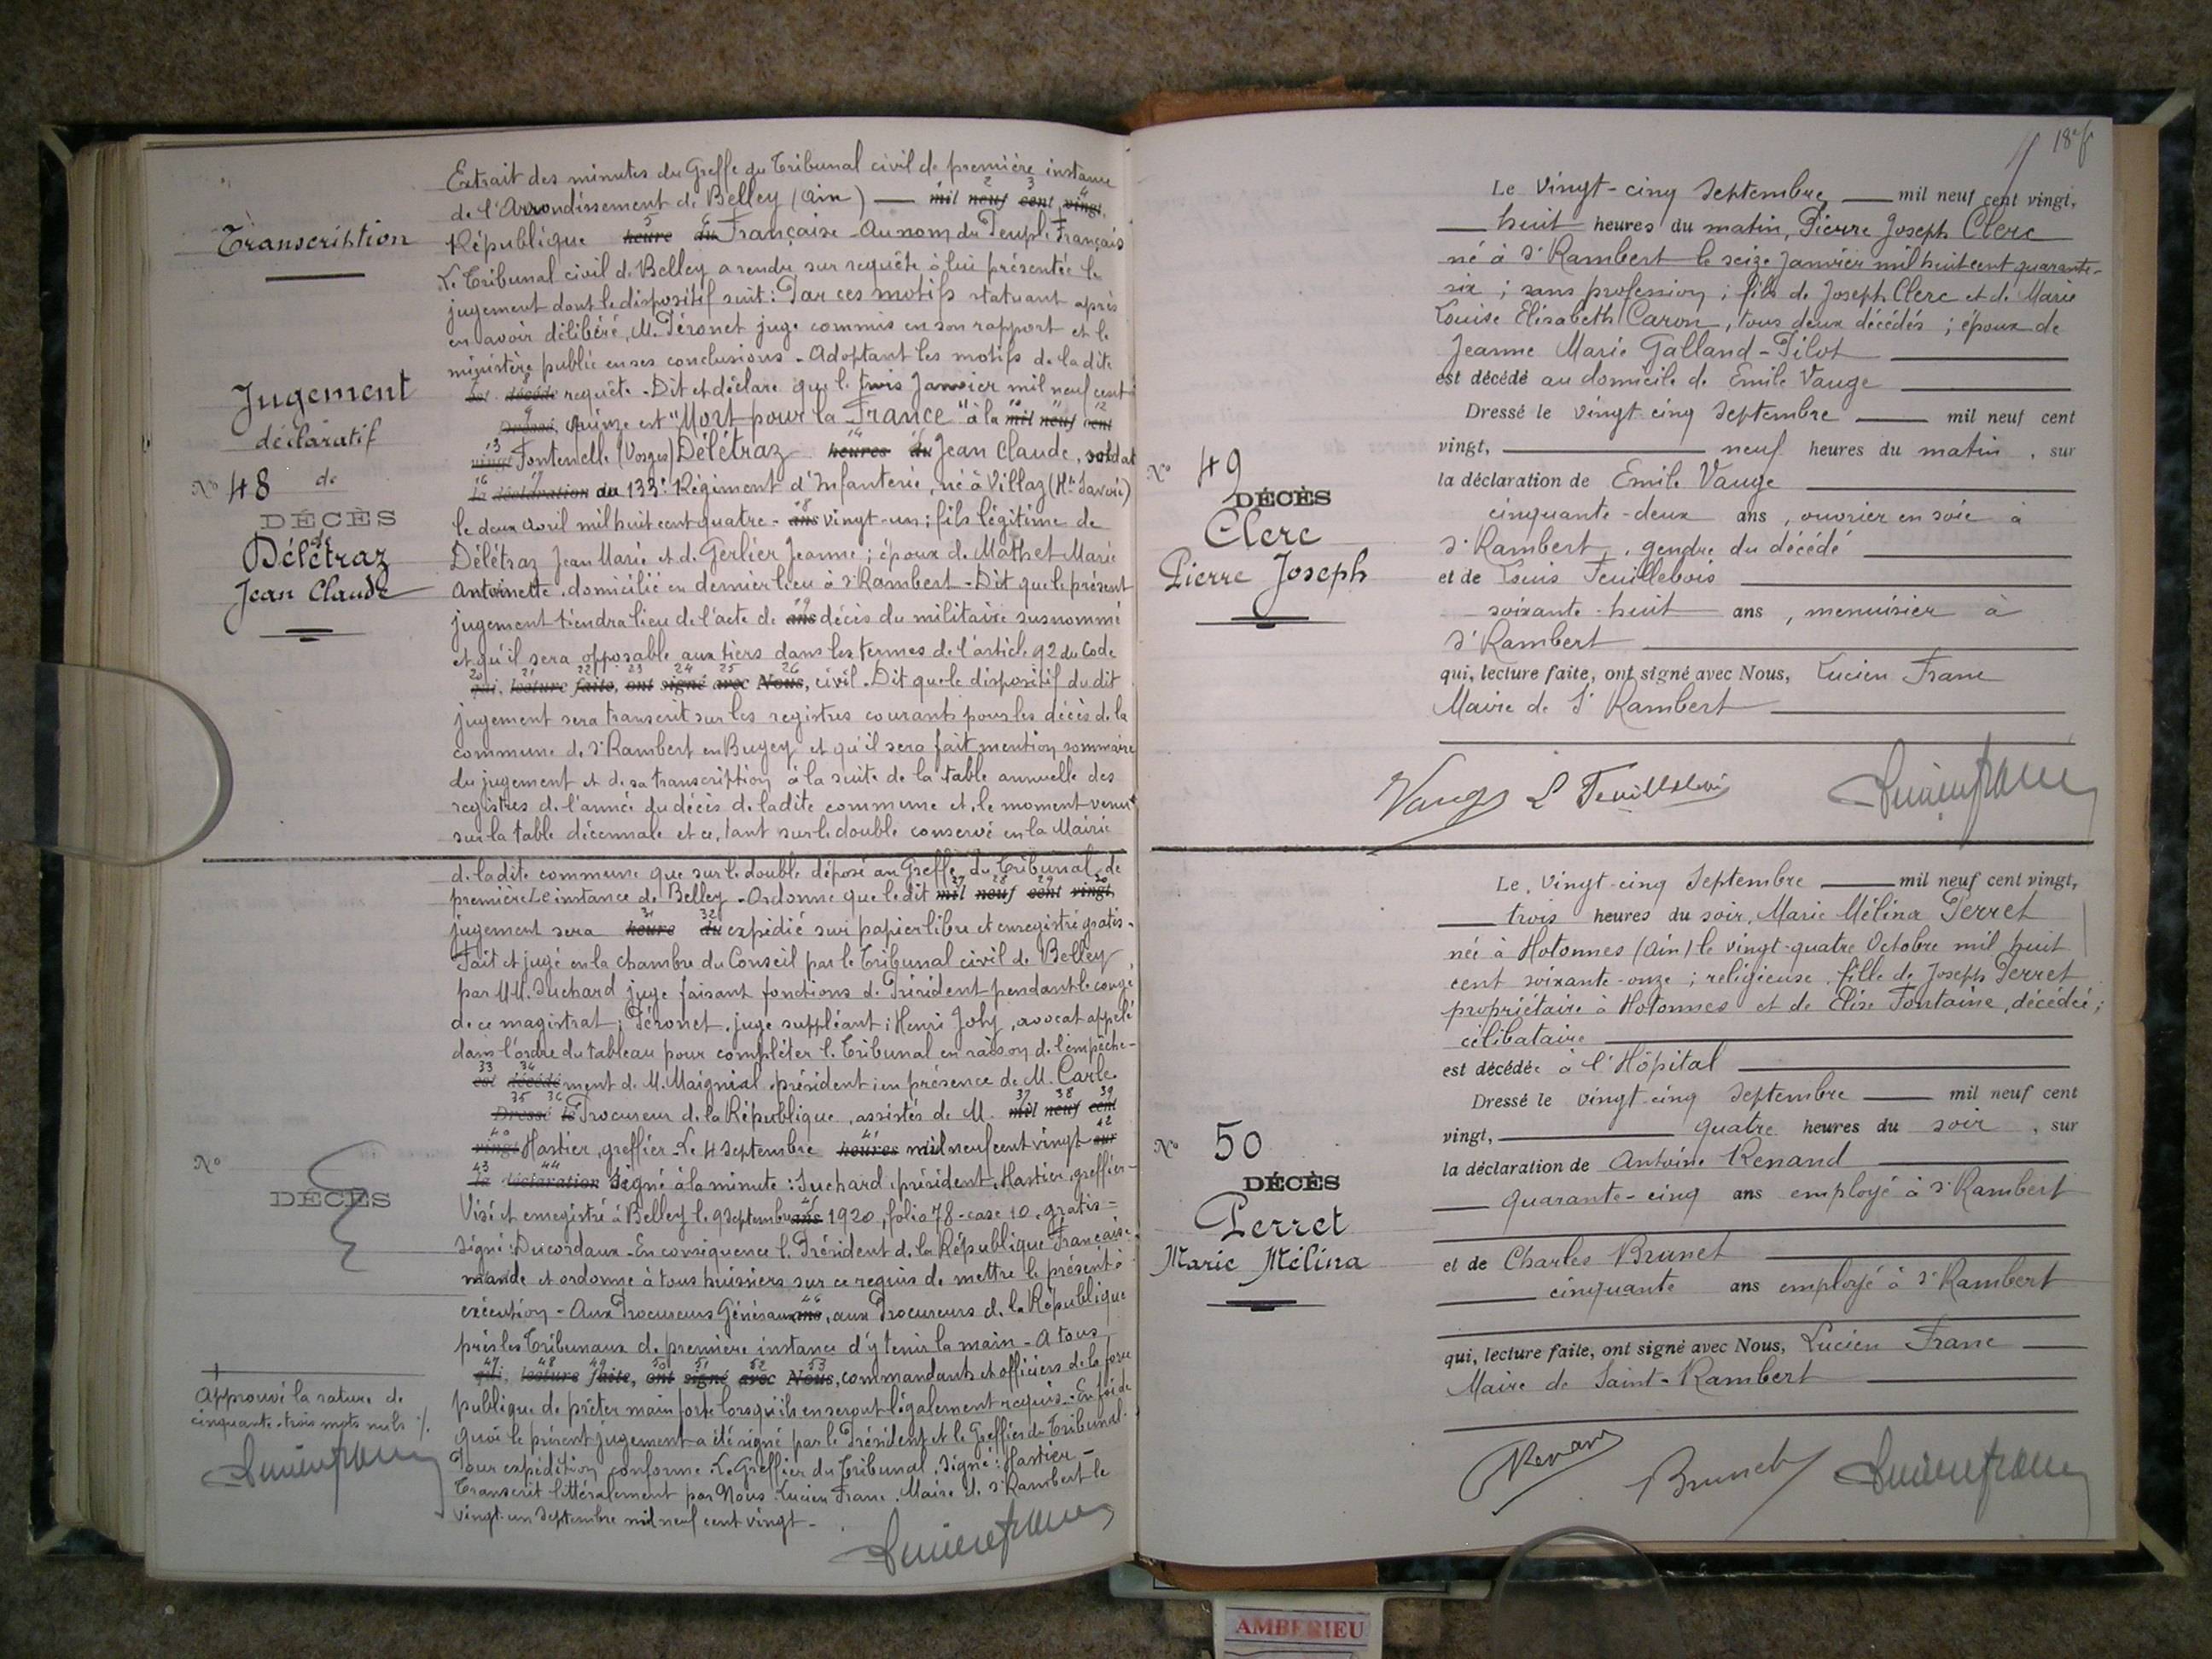 Transcription
Jugement
déclaratif
N° 48 de
DÉCÈS
de
Délétraz
Jean Claude
Extrait des minutes du Greffe du Tribunal civil de première instance
de l'Arrondissement de Belley (Ain) — mil neuf cent vingt,
République heure du Française - Au nom du Peuple Français
Le Tribunal civil de Belley a rendu sur requête à lui présentée le
jugement dont le dispositif suit : Par ces motifs statuant après
en avoir délibéré, M. Péronet juge commis en son rapport et le
ministère public en ses conclusions - Adoptant les motifs de la dite
est décédé requête - Dit et déclare que le trois Janvier mil neuf cent
Dressé, quinze est "Mort pour la France" à la mil neuf cent
vingt Fontenelle (Vosges) Délétraz heures du Jean Claude, soldat
la déclaration du 133e Régiment d'Infanterie, né à Villaz (Hte Savoie)
le deux Avril mil huit cent quatre- ans vingt-un ; fils légitime de
Délétraz Jean Marie et de Gerlier Jeanne ; époux de Mathet Marie
Antoinette, domicilié en dernier lieu à St Rambert - Dit que le présent
jugement tiendra lieu de l'acte de ans décès du militaire susnommé
et qu'il sera opposable aux tiers dans les termes de l'article 92 du Code
qui, lecture faite, ont signé avec Nous, civil. Dit que le dispositif du dit
jugement sera transcrit sur les registres courants pour les décès de la
commune de St Rambert en Bugey et qu'il sera fait mention sommaire
du jugement et de sa transcription à la suite de la table annuelle des
registres de l'année du décès de ladite commune et, le moment venu
sur la table décennale et ce, tant sur le double conservé en la Mairie
de ladite commune que sur le double déposé au Greffe du Tribunal de
première Le instance de Belley - Ordonne que le dit mil neuf cent vingt,
jugement sera heure du expédié sur papier libre et enregistré gratis -
Fait et jugé en la chambre du Conseil par le Tribunal civil de Belley,
par MM. Suchard juge faisant fonctions de Président pendant le congé
de ce magistrat ; Péronet, juge suppléant ; Henri Joly, avocat appelé
dans l'ordre du tableau pour compléter le Tribunal en raison de l'empêche-
est décédé ment de M. Maignial, président ; en présence de M. Carle
Dressé le Procureur de la République, assistés de M. mil neuf cent
vingt Hastier, greffier - Le 4 Septembre heures mil neuf cent vingt sur
la déclaration Signé à la minute : Suchard, président, Hastier, greffier -
Visé et enregistré à Belley le 9 Septembre ans 1920, folio 78 - case 10, gratis =
Signé : Ducordaux - En conséquence le Président de la République Française
mande et ordonne à tous huissiers sur ce requis de mettre le présent à
exécution - Aux Procureurs Généraux ans, aux Procureurs de la République
près les Tribunaux de première instance d'y tenir la main - A tous
qui, lecture faite, ont signé avec Nous, commandants et officiers de la force
publique de prêter main forte lorsqu'ils en seront légalement requis - En foi de
quoi le présent jugement a été signé par le Président et le Greffier du Tribunal.
Pour expédition conforme. Le Greffier du Tribunal, signé : Hastier -
Transcrit littéralement par Nous Lucien Franc, Maire de St Rambert le
vingt-un Septembre mil neuf cent vingt -
N°
DÉCÈS
Approuvé la rature de
cinquante-trois mots nuls ./.
Lucien Franc
Lucien Franc
N° 49
DÉCÈS
Clerc
Pierre Joseph
Le vingt-cinq Septembre — mil neuf cent vingt,
— huit heures du matin, Pierre Joseph Clerc
né à St Rambert le seize Janvier mil huit cent quarante-
six ; sans profession ; fils de Joseph Clerc et de Marie
Louise Elisabeth Caron, tous deux décédés ; époux de
Jeanne Marie Galland-Pilot
est décédé au domicile de Emile Vauge
Dressé le vingt-cinq Septembre — mil neuf cent
vingt, — neuf heures du matin, sur
la déclaration de Emile Vauge
cinquante-deux ans, ouvrier en soie à
St Rambert, gendre du décédé
et de Louis Feuillebois
soixante-huit ans, menuisier à
St Rambert
qui, lecture faite, ont signé avec Nous, Lucien Franc
Maire de St Rambert
Vauge L Feuillebois Lucien Franc
N° 50
DÉCÈS
Perret
Marie Mélina
Le vingt-cinq Septembre — mil neuf cent vingt,
— trois heures du soir, Marie Mélina Perret
née à Hotonnes (Ain) le vingt-quatre Octobre mil huit
cent soixante-onze ; religieuse, fille de Joseph Perret
propriétaire à Hotonnes et de Elise Fontaine, décédée ;
célibataire
est décédée à l'Hôpital
Dressé le vingt-cinq Septembre — mil neuf cent
vingt, — quatre heures du soir, sur
la déclaration de Antoine Renand
— quarante-cinq ans employé à St Rambert
et de Charles Brunet
— cinquante ans employé à St Rambert
qui, lecture faite, ont signé avec Nous, Lucien Franc
Maire de Saint-Rambert
Renand Brunet Lucien Franc
AMBERIEU